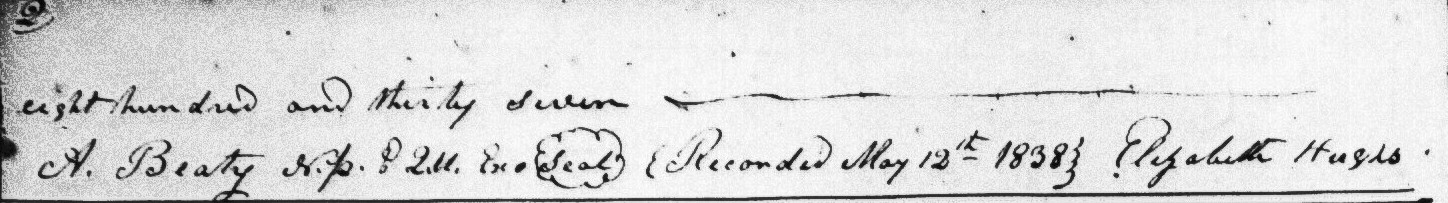 2
eight hundred and thirty seven
A. Beaty N.p. & Q.U. Exo Seal {Recorded May 12th 1838} Elizabeth Hughs